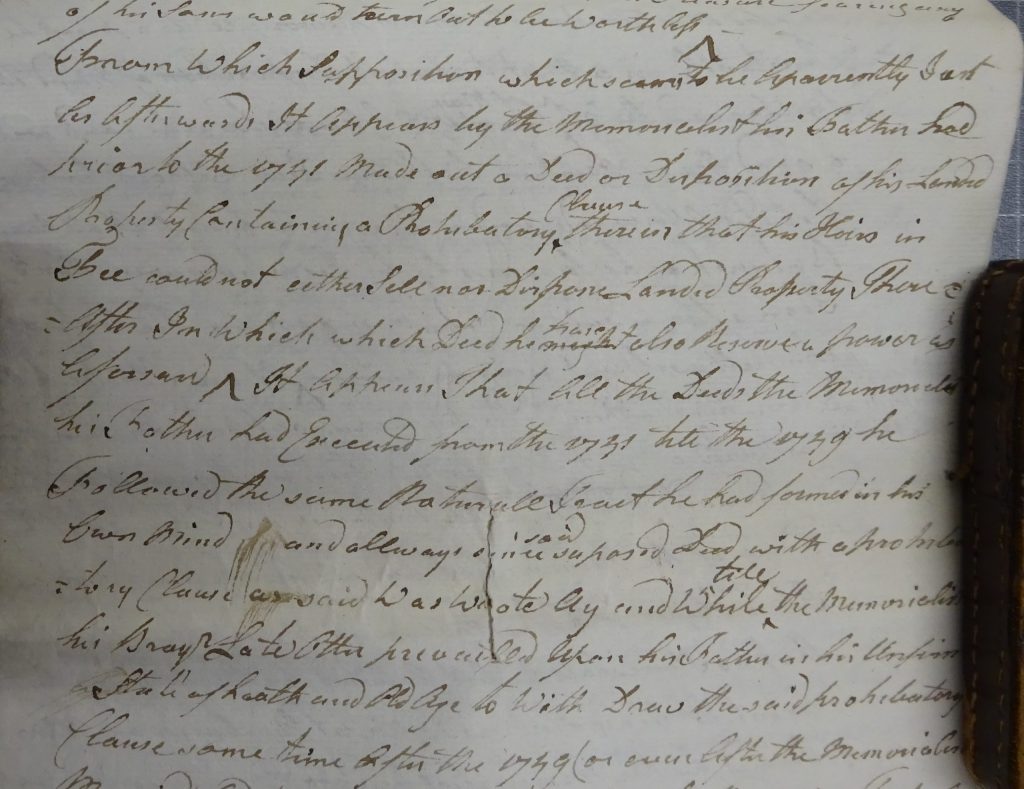 of his Sons would turn out to be worth less
From Which Supposition which seems to be Aparrently Just
as Afterwards It Appears by the Memorialist his Father had
prior to the 1741 Made out a Deed or Disposition of his Landed
Clause
Property Containing a Prohibatory Therein that his Heirs in
Fee could not either Sell nor Dispone Landed Property There =
=After In Which which Deed he might also Reserve a power as
aforsaid It Appears That all the Deeds the Memorialis
his Father had Executed from the 1741 till the 1749 he
Followed the same Naturall Tract he had formed in his
said
Own Mind and allways since suposed Deed with a prohiba
till
=tory Clause as said Was Wrote Ay and While the Memorialis
his Broyr Late Otter prevailed Upon his Father in his Unfirm
State of heath and Old Age to With Draw the said prohibatory
Clause some time After the 1749 (or even After the Memorialis